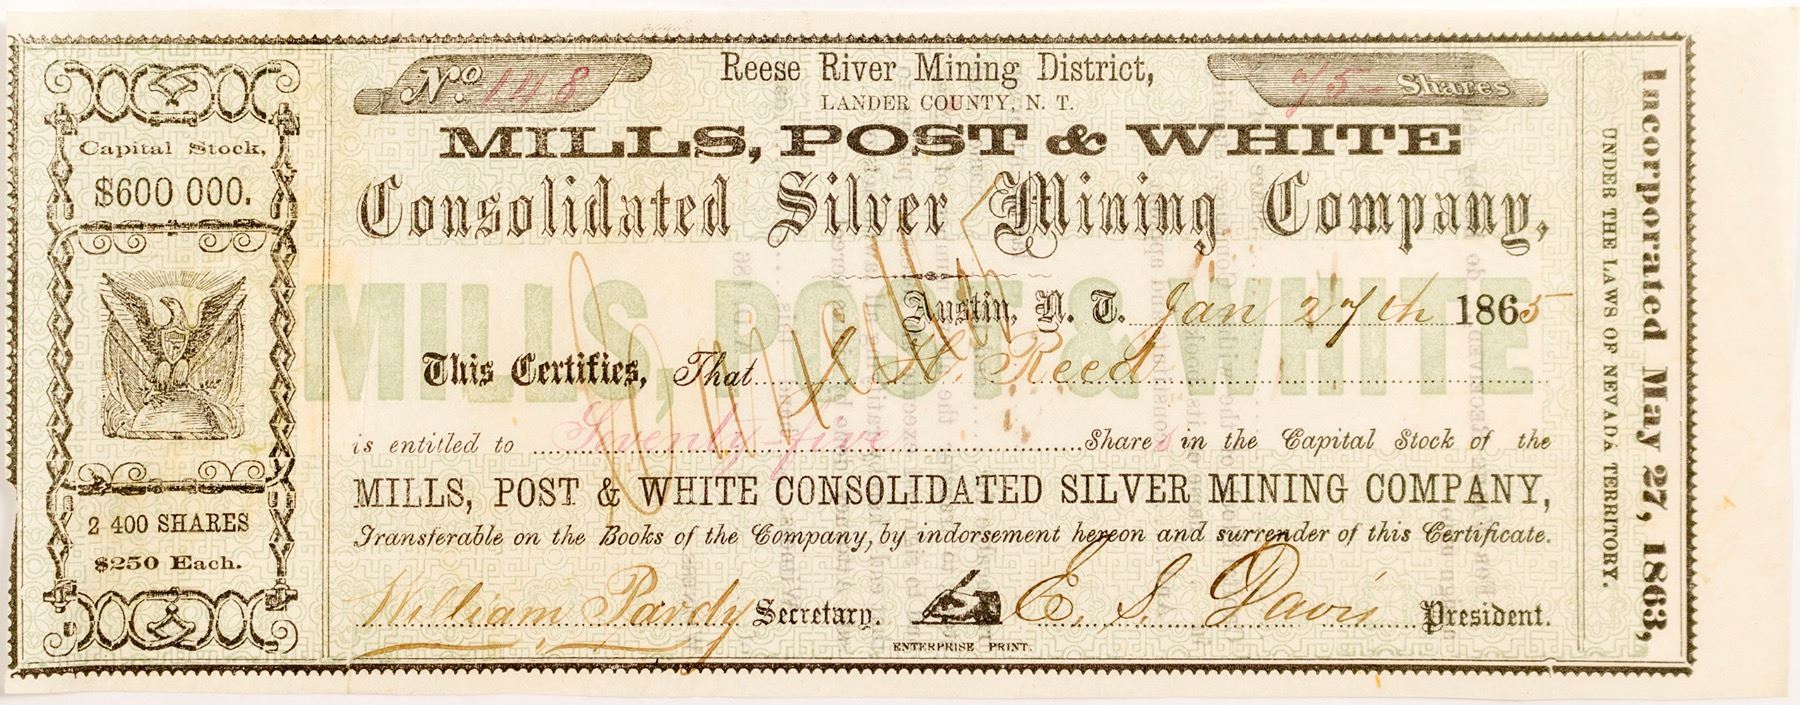 Capital Stock,
$600 000.
2 400 SHARES
$250 Each.
No. 148
Reese River Mining District,
75 Shares
LANDER COUNTY, N. T.
MILLS, POST & WHITE
Consolidated Silver Mining Company,
MILLS, POST & WHITE
Austin, N. T. Jan 27th 1865
This Certifies, That J H. Reed
is entitled to Seventy-five Shares in the Capital Stock of the
MILLS, POST & WHITE CONSOLIDATED SILVER MINING COMPANY,
Transferable on the Books of the Company, by indorsement hereon and surrender of this Certificate.
William Pardy Secretary. E. S. Davis President.
ENTERPRISE PRINT.
UNDER THE LAWS OF NEVADA TERRITORY.
Incorporated May 27, 1863,